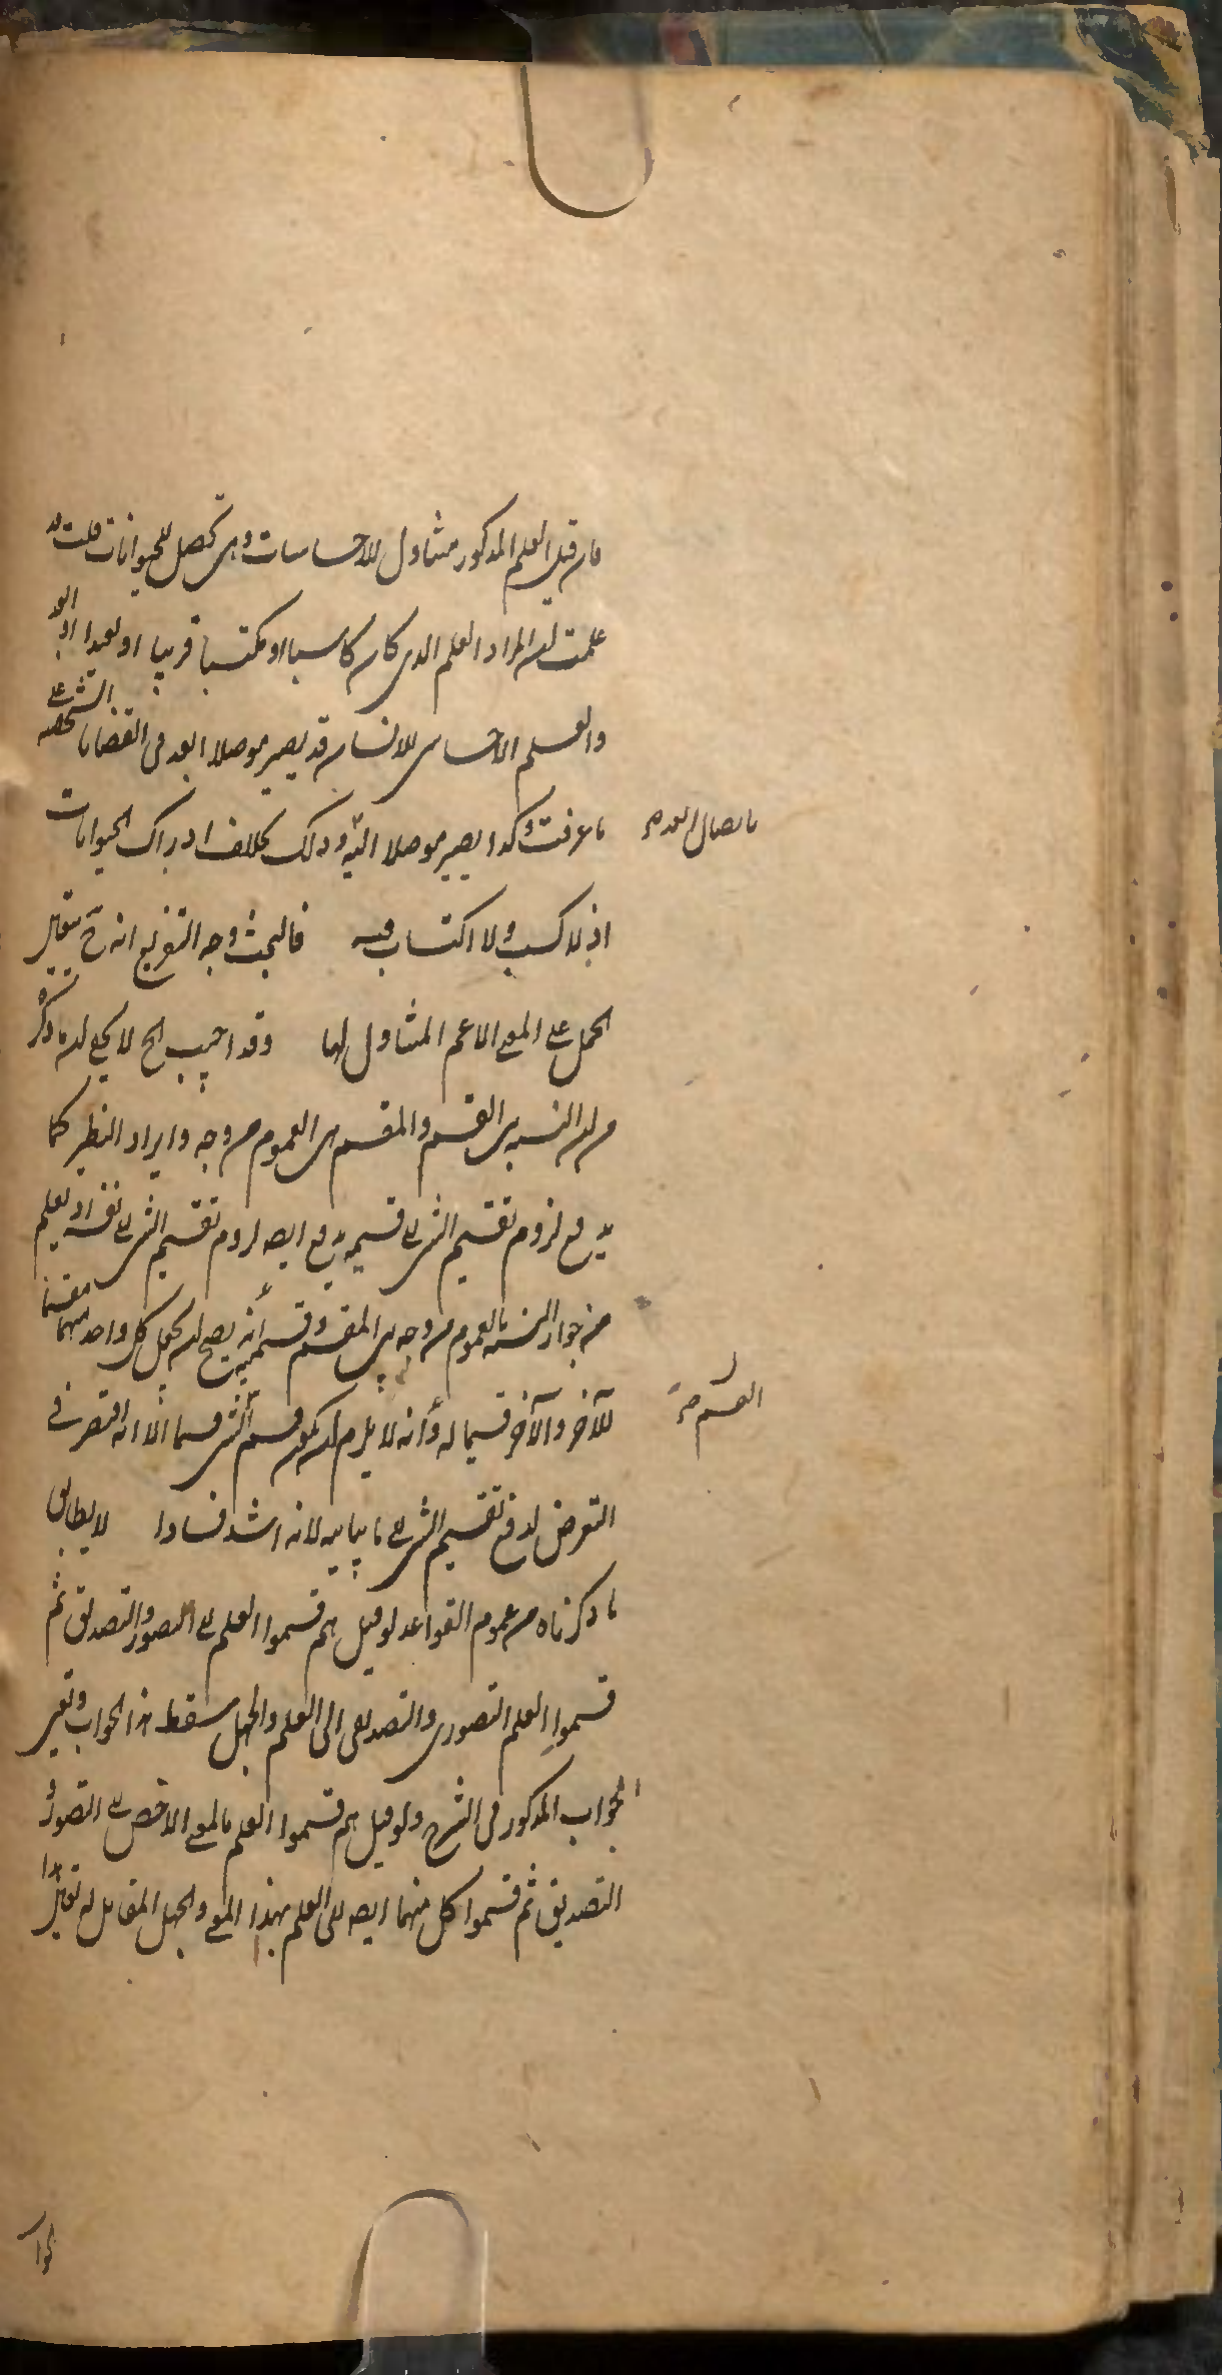 فان قيل العلم المذكور متناول للاحساسات وهى تحصل للحيوانات قلت قد
علمت ان المراد العلم الذى كان كاسبا او مكتسبا قريبا او بعيدا او
والعلم الاحساسى للانسان قد يصير موصلا ابعد فى القضايا الشخصية على
ما عرفت وكذا يصير موصلا اليه وذلك بخلاف ادراك الحيوانات
بايصال
اذ لا كسب ولا اكتساب فيه فالبحث وجه التفريع انه ح يتغير
الحمل على المعنى الاعم المتناول لهما وقد اجيب الخ لا يخفى ان ما ذكر
من ان النسبة بين القسم والمقسم هى العموم من وجه وايراد النظير كما
يدفع لزوم تقسيم الشئ الى قسيمه يدفع ايضه لزوم تقسيم الشئ الى نفسه اذ يعلم
من جواز النسبة بالعموم من وجه بين المقسم وقسميه أنه يصح ان يجعل كل واحد منهما مقسما
للآخر والآخر قسيما له وأنه لا يلزم ان يكون قسم الشئ قسما الا انه اقتصر فى
القسم
التعرض لدفع تقسيم الشئ الى ما يباينه لانه اشد فسادا لا يطابق
ما ذكرناه من عموم القواعد لو قيل هم قسموا العلم الى التصور والتصديق ثم
قسموا العلم التصورى والتصديقى الى العلم والجهل سقط هذا الجواب وتغير
الجواب المذكور فى الشرح ولو قيل هم قسموا العلم بالمعنى الاخص الى التصور و
التصديق ثم قسموا كل منهما ايضه الى العلم بهذا المعنى والجهل المقابل له تغير هذا